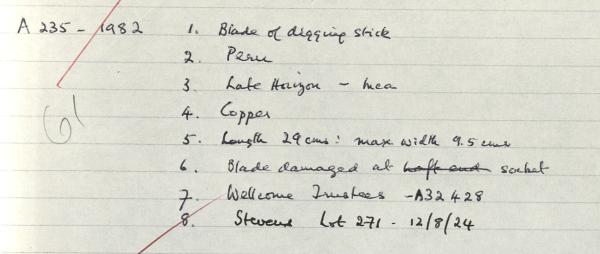 A 235 - 1982 1. Blade of digging stick
2. Peru
3. Late Horizon - Inca
4. Copper
61
5. Length 29 cms: max width 9.5 cms
6. Blade damaged at haft end socket
7. Wellcome Trustees - A32428
8. Stevens Lot 271 - 12/8/24